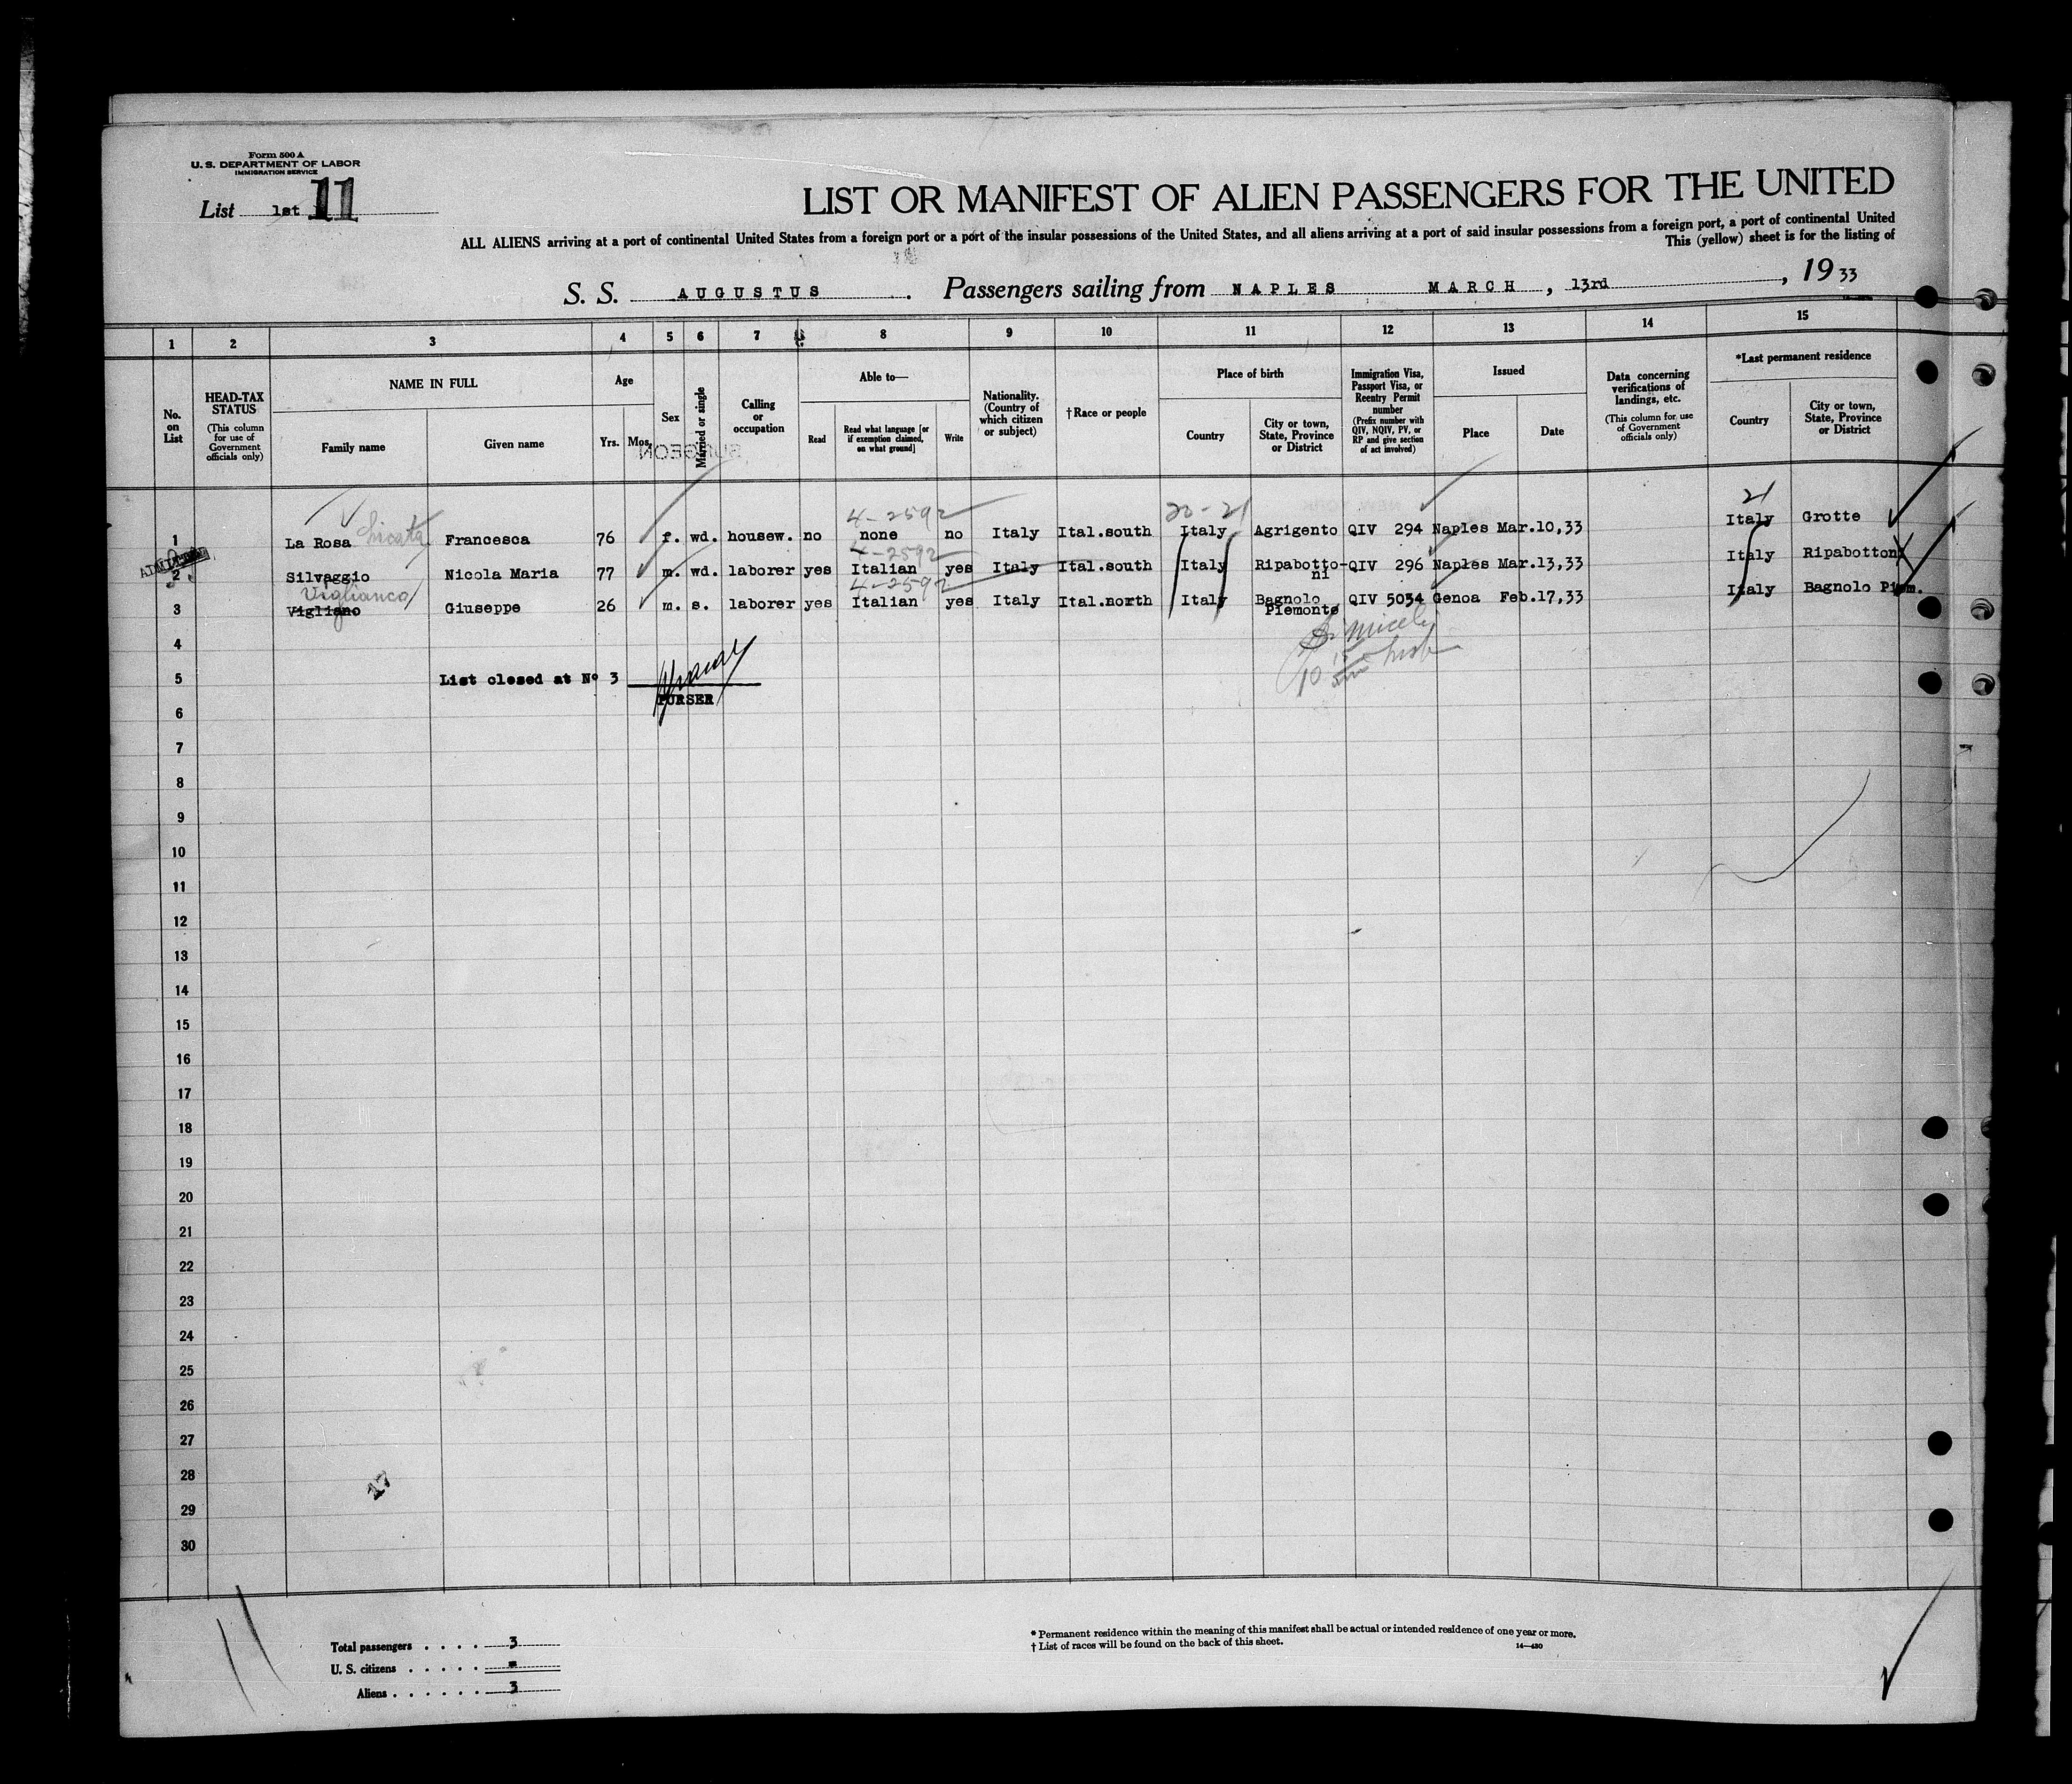 Form 500 A
U. S. DEPARTMENT OF LABOR
IMMIGRATION SERVICE
List 1st 11
LIST OR MANIFEST OF ALIEN PASSENGERS FOR THE UNITED
ALL ALIENS arriving at a port of continental United States from a foreign port or a port of the insular possessions of the United States, and all aliens arriving at a port of said insular possessions from a foreign port, a port of continental United
This (yellow) sheet is for the listing of
S. S. AUGUSTUS. Passengers sailing from NAPLES MARCH, 13rd, 1933
1 2 3 4 5 6 7 8 9 10 11 12 13 14 15
No. on List
HEAD-TAX STATUS
(This column for use of Government officials only)
NAME IN FULL
Family name
Given name
Age
Yrs.
Mos.
Sex
Married or single
SURGEON
Calling or occupation
Able to—
Read
Read what language [or if exemption claimed, on what ground]
Write
Nationality. (Country of which citizen or subject)
†Race or people
Place of birth
Country
City or town, State, Province or District
Immigration Visa, Passport Visa, or Reentry Permit number
(Prefix number with QIV, NQIV, PV, or RP and give section of act involved)
Issued
Place
Date
Data concerning verifications of landings, etc.
(This column for use of Government officials only)
*Last permanent residence
Country
City or town, State, Province or District
4-2592 20-21 21
1 La Rosa Licata Francesca 76 f. wd. housew. no none no Italy Ital.south Italy Agrigento QIV 294 Naples Mar.10,33 Italy Grotte
ADMITTED
4-2592
2 Silvaggio Nicola Maria 77 m. wd. laborer yes Italian yes Italy Ital.south Italy Ripabotto-ni QIV 296 Naples Mar.13,33 Italy Ripabottoni
Viglianco 4-2592
3 Vigliano Giuseppe 26 m. s. laborer yes Italian yes Italy Ital.north Italy Bagnolo Piemonte QIV 5054 Genoa Feb.17,33 Italy Bagnolo Piem.
4
5 List closed at Nº 3
PURSER
6
7
8
9
10
11
12
13
14
15
16
17
18
19
20
21
22
23
24
25
26
27
28
17
29
30
Total passengers . . . . 3
U. S. citizens . . . . . -
Aliens . . . . . . 3
* Permanent residence within the meaning of this manifest shall be actual or intended residence of one year or more.
† List of races will be found on the back of this sheet. 14—480